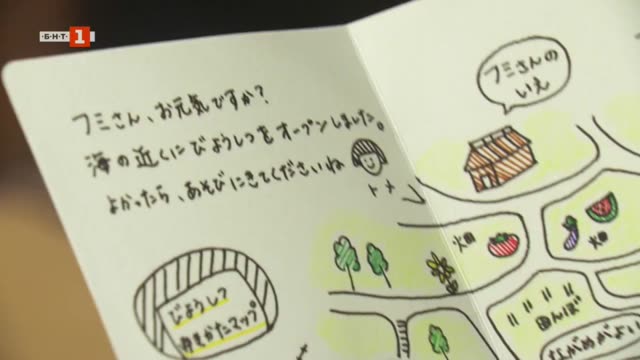 БНТ 1
フミさん、お元気ですか?
海の近くにびようしつをオープンしました。
よかったら、あそびにきてくださいね
トナ
フミさんの
いえ
火田
火田
田んぼ
ながめがよい
びようしつ
行きかたマップ